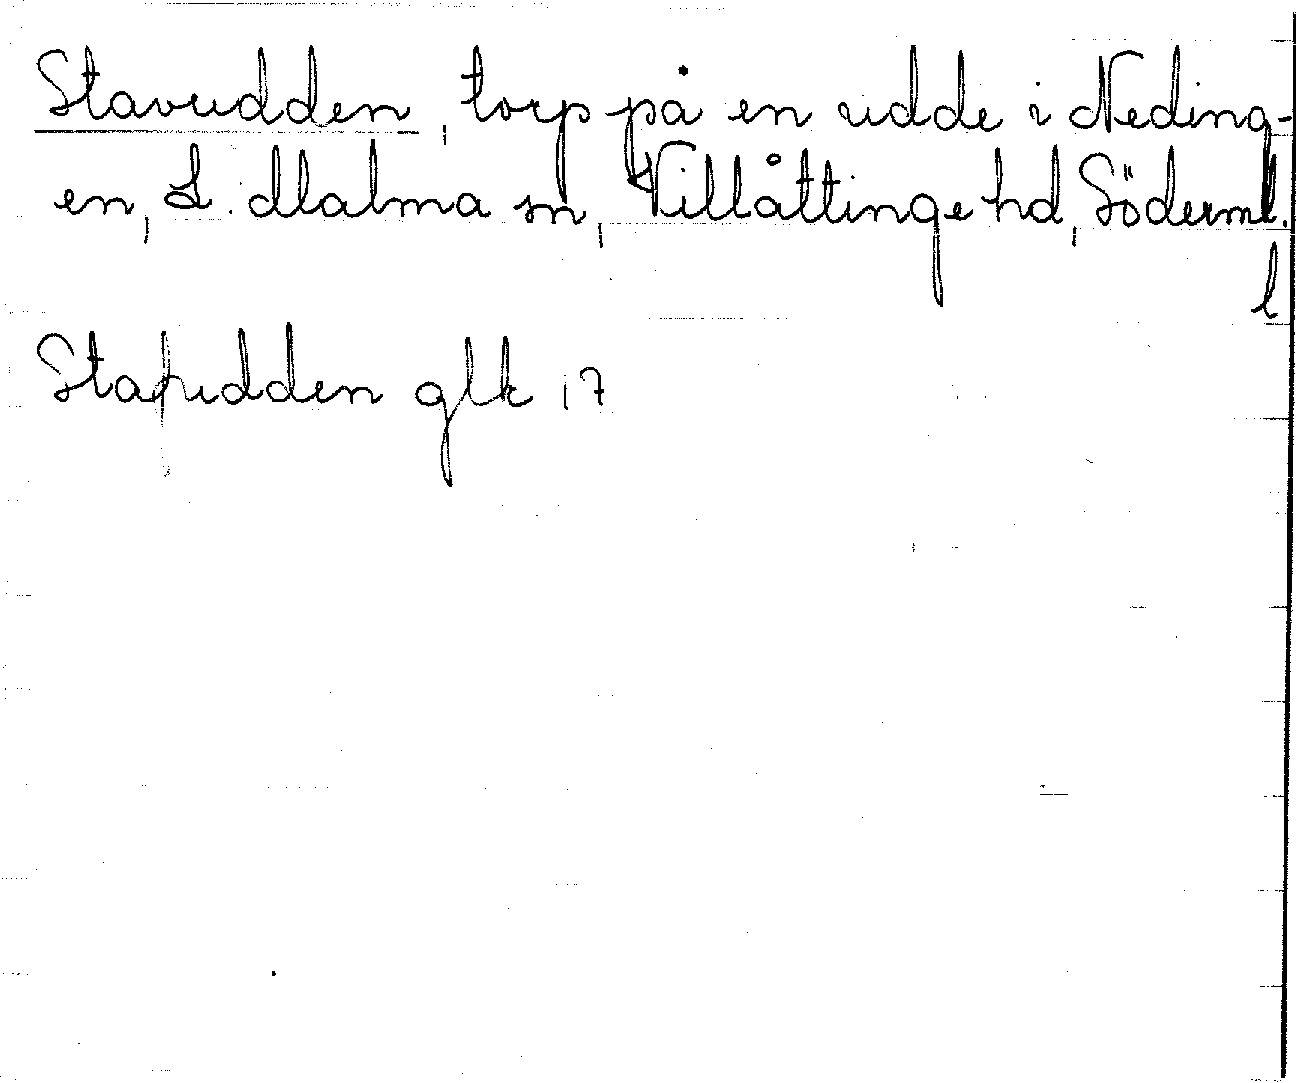 Stavudden, torp på en udde i Neding-
en, L. Malma sn, Villåttinge hd, Söderml.
l
Stafudden glk 17